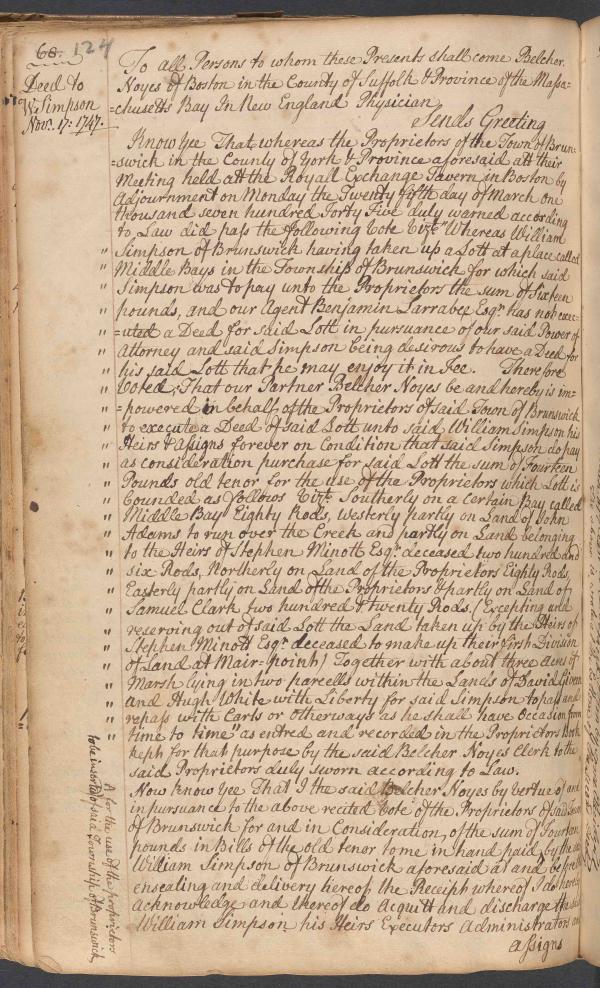 68. 124
Deed to
W. Simpson
Novr. 17: 1747.
To all Persons to whom these Presents shall come Belcher
Noyes of Boston in the County of Suffolk & Province of the Massa=
=chusetts Bay In New England Physician
Sends Greeting
Know Yee That whereas the Proprietors of the Town of Brun=
=swick in the County of York & Province aforesaid att their
Meeting held att the Royall Exchange Tavern in Boston by
Adjournment on Monday the Twenty fifth day of March one
thousand seven hundred Forty Five duly warned according
to Law did pass the following Vote Vizt. Whereas William
" Simpson of Brunswick having taken up a Lott at a place called
" Middle Bays in the Township of Brunswick for which said
" Simpson was to pay unto the Proprietors the sum of Sixteen
" pounds, and our Agent Benjamin Larrabee Esqr. has not exec=
" =uted a Deed for said Lott in pursuance of our said Power of
" Attorney and said Simpson being desirous to have a Deed for
" his said Lott that he may enjoy it in Fee. Therefore
" Voted, That our Partner Belcher Noyes be and hereby is im=
" =powered in behalf of the Proprietors of said Town of Brunswick
" to execute a Deed of said Lott unto said William Simpson his
" Heirs & Assigns forever on Condition that said Simpson do pay
" as consideration purchase for said Lott the sum of Fourteen
" Pounds old tenor for the use of the Proprietors which Lott is
" bounded as follows Vizt. Southerly on a Certain Bay called
" Middle Bay Eighty Rods, Westerly partly on Land of John
" Adams to run over the Creek and partly on Land belonging
" to the Heirs of Stephen Minott Esqr. deceased two hundred and
" six Rods, Northerly on Land of the Proprietors Eighty Rods,
" Easterly partly on Land of the Proprietors & partly on Land of
" Samuel Clark two hundred & twenty Rods, / Excepting and
" reserving out of said Lott the Land taken up by the Heirs of
" Stephen Minott Esqr. deceased to make up their first Division
" of Land at Mair=point / Together with about three acres of
" Marsh lying in two parcells within the Lands of David Given
" and Hugh White with Liberty for said Simpson to pass and
" repass with Carts or otherways as he shall have occasion from
" time to time" as entred and recorded in the Proprietors Book
kept for that purpose by the said Belcher Noyes Clerk to the
said Proprietors duly sworn according to Law.
Now know Yee That I the said Belcher Noyes by vertue of and
in pursuance to the above recited Vote of the Proprietors of said
of Brunswick for and in Consideration of the sum of Fourteen
pounds in Bills of the old tenor to me in hand paid by the
William Simpson of Brunswick aforesaid at and before
ensealing and delivery hereof the Receipt whereof I do hereby
acknowledge and thereof do Acquitt and discharge the said
William Simpson his Heirs Executors Administrators and
assigns
A for the use of the proprietors
to be inserted of said Township of Brunswick